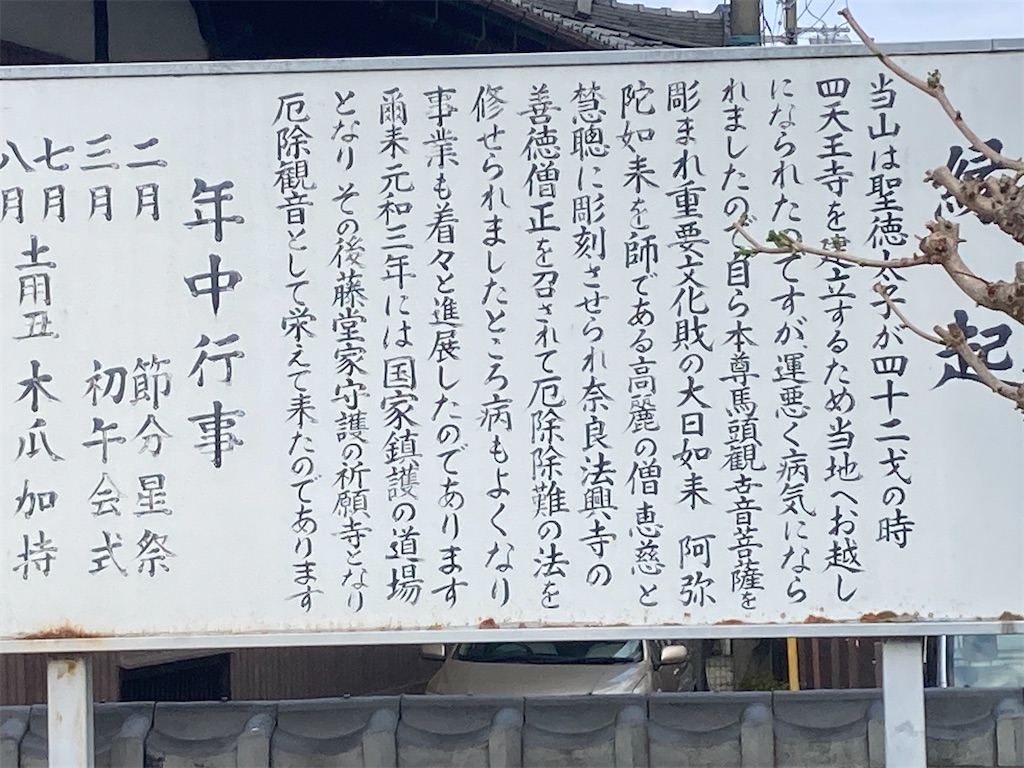 縁起
当山は聖徳太子が四十二戈の時
四天王寺を建立するため当地へお越し
になられたのですが運悪く病気になら
れましたので自ら本尊馬頭観音菩薩を
彫まれ重要文化財の大日如来 阿弥
陀如来を師である高麗の僧恵慈と
慧聰に彫刻させられ奈良法興寺の
善徳僧正を召されて厄除除難の法を
修せられましたところ病もよくなり
事業も着々と進展したのであります
爾来元和三年には国家鎮護の道場
となり その後藤堂家守護の祈願寺となり
厄除観音として栄えて来たのであります
年中行事
二月 節分星祭
三月 初午会式
七月
八月 土用丑 木瓜加持